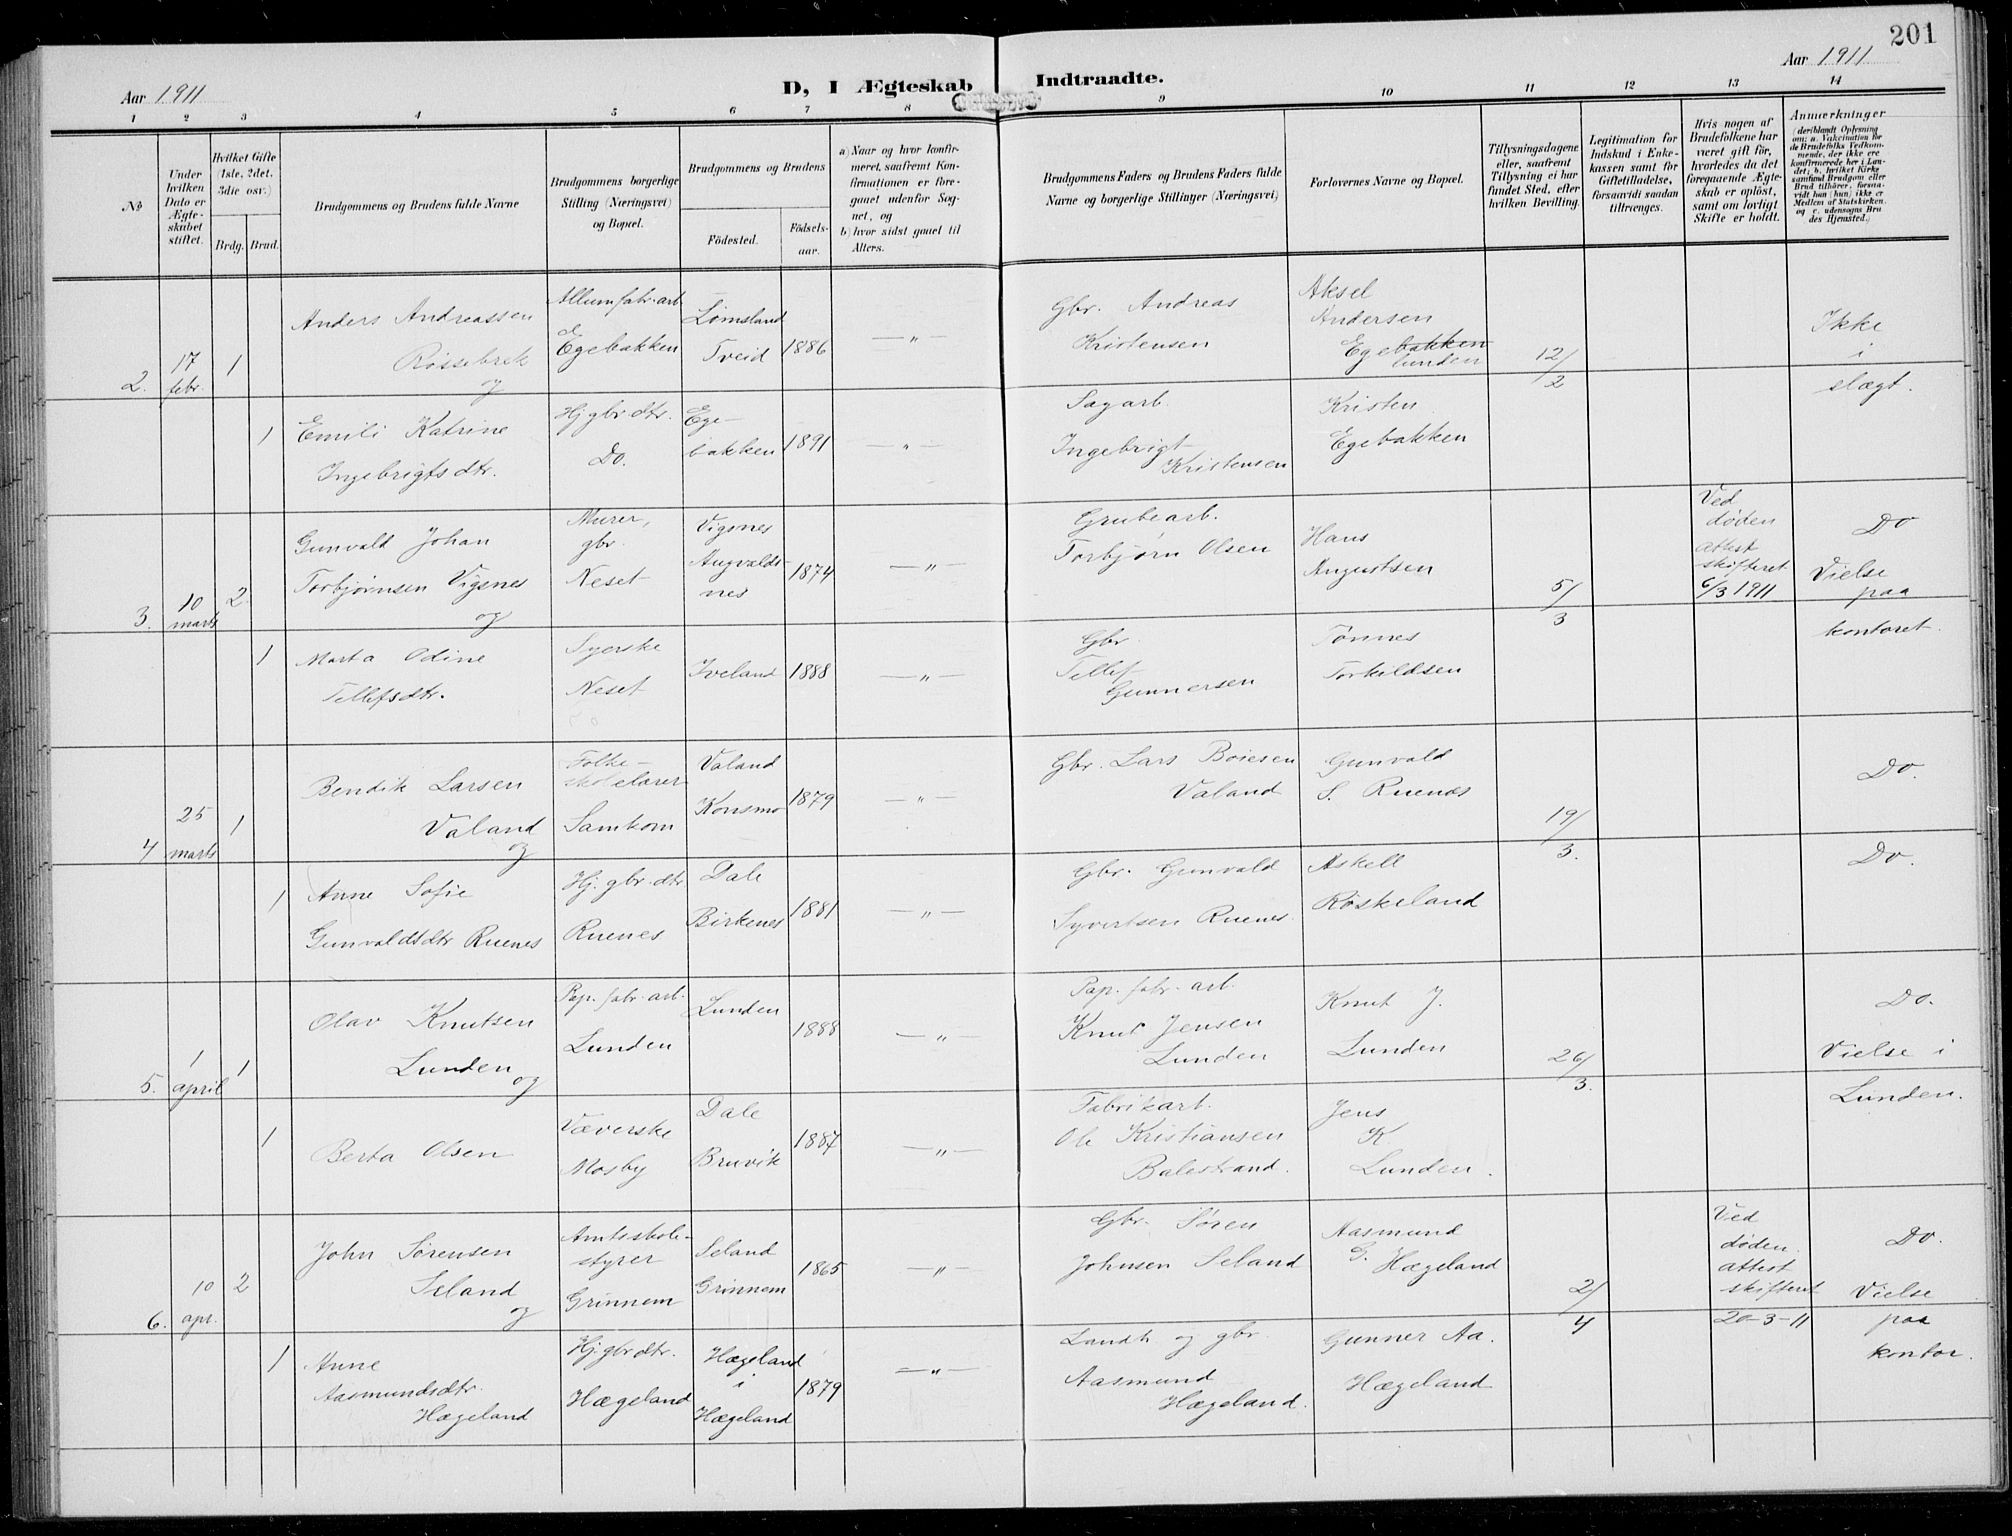 201
Aar 1911
D, I Ægteskab Indtraadte.
Aar 1911
1 2 3 4 5 6 7 8 9 10 11 12 13 14
No
Under hvilken Dato er Ægteskabet stiftet.
Hvilket Gifte 1ste, 2det, 3die osv.:
Brdg. Brud.
Brudgommens og Brudens fulde Navne
Brudgommens borgerlige Stilling (Næringsvei) og Bopæl.
Brudgommens og Brudens
Födested.
Födselsaar.
a) Naar og hvor konfirmeret, saafremt Konfirmationen er foregaaet udenfor Sognet, og
b) hvor sidst gaaet til Alters.
Brudgommens Faders og Brudens Faders fulde Navne og borgerlige Stillinger (Næringsvei)
Forlovernes Navne og Bopæl.
Tillysningsdagene eller, saafremt Tillysning ei har fundet Sted, efter hvilken Bevilling.
Legitimation for Indskud i Enkekassen samt for Giftetilladelse, forsaavidt saadan tiltrænges.
Hvis nogen af Brudefolkene har været gift för, hvorledes da det foregaaende Ægteskab er oplöst, samt om lovligt Skifte er holdt.
Anmærkninger
(deriblandt Oplysning om: a. Vakcination for de Brudefolks Vedkommende, der ikke ere konfirmerede her i Landet; b. hvilket Kirkesamfund Brudgom eller Brud tilhörer, forsaavidt han (hun) ikke er Medlem af Statskirken, og c. udensogns Brudes Hjemsted.)
2. 17 febr. 1
Anders Andreassen
Røssebrek
og
Allumfabr. arb.
Egebakken
Lømsland
Tveid
1886
— " —
Gbr. Andreas
Kristensen
Aksel
Andersen
Egebakken
lunden
12/2
Ikke
i
slægt.
1
Emili Katrine
Ingebrigtsdtr.
Hj. gbr. dtr.
Do.
Ege-
bakken
1891
— " —
Sagarb.
Ingebrigt
Kristensen
Kristen
Egebakken
3. 10 marts 2
Gunvald Johan
Torbjørnsen Vigsnes
og
Murer,
gbr.
Neset
Vigsnes
Augvalds-
nes
1874
— " —
Grubearb.
Torbjørn Olsen
Hans
Augustsen
5/3
Ved
døden
attest
skifteret
6/3 1911
Do
Vielse
paa
kontoret.
1
Marta Odine
Tellefsdtr.
Syerske
Neset
Iveland
1888
— " —
Gbr
Tellef
Gunnersen
Tønnes
Torkildsen
4 25 marts 1
Bendik Larsen
Valand
og
Folke-
skolelærer
Samkom
Valand
Konsmo
1879
— " —
Gbr. Lars Boiesen
Valand
Gunvald
S. Ruenes
19/3.
Do.
1
Anne Sofie
Gunvaldsdtr Ruenes
Hj. gbr. dtr
Ruenes
Dale
Birkenes
1881
— " —
Gbr. Gunvald
Syvertsen Ruenes.
Askell
Røskeland
Do.
5. 1 april 1
Olav Knutsen
Lunden
og
Pap. fabr. arb.
Lunden
Lunden
1888
— " —
Pap. fabr. arb.
Knut Jensen
Lunden
Knut J.
Lunden
26/3.
Do.
Vielse i
Lunden.
1
Berta Olsen
Væverske
Mosby
Dale
Bruvik
1887
— " —
Fabrikarb.
Ole Kristiansen
Balestrand.
Jens
K.
Lunden.
6. 10 apr. 2
John Sørensen
Seland
og
Amtsskole-
styrer
Grinnem
Seland
Grinnem
1865
— " —
Gbr. Søren
Johnsen Seland
Aasmund
G. Hægeland
2/4
Ved
døden.
attest
skifteret
20-3-11
Do.
Vielse
paa
kontor.
1
Anne
Aasmundsdtr.
Hægeland
Hj. gbr dtr.
Hægeland
Hægeland
i
Hægeland
1879
— " —
Landh. og gbr.
Aasmund
Hægeland.
Gunner Aa.
Hægeland